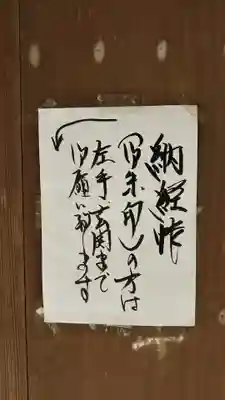 納経帖
(御朱印)の方は
左手玄関まで
御願い致します